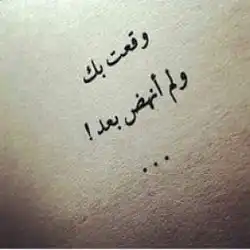 وقعت بك
ولم أنهض بعد !
...